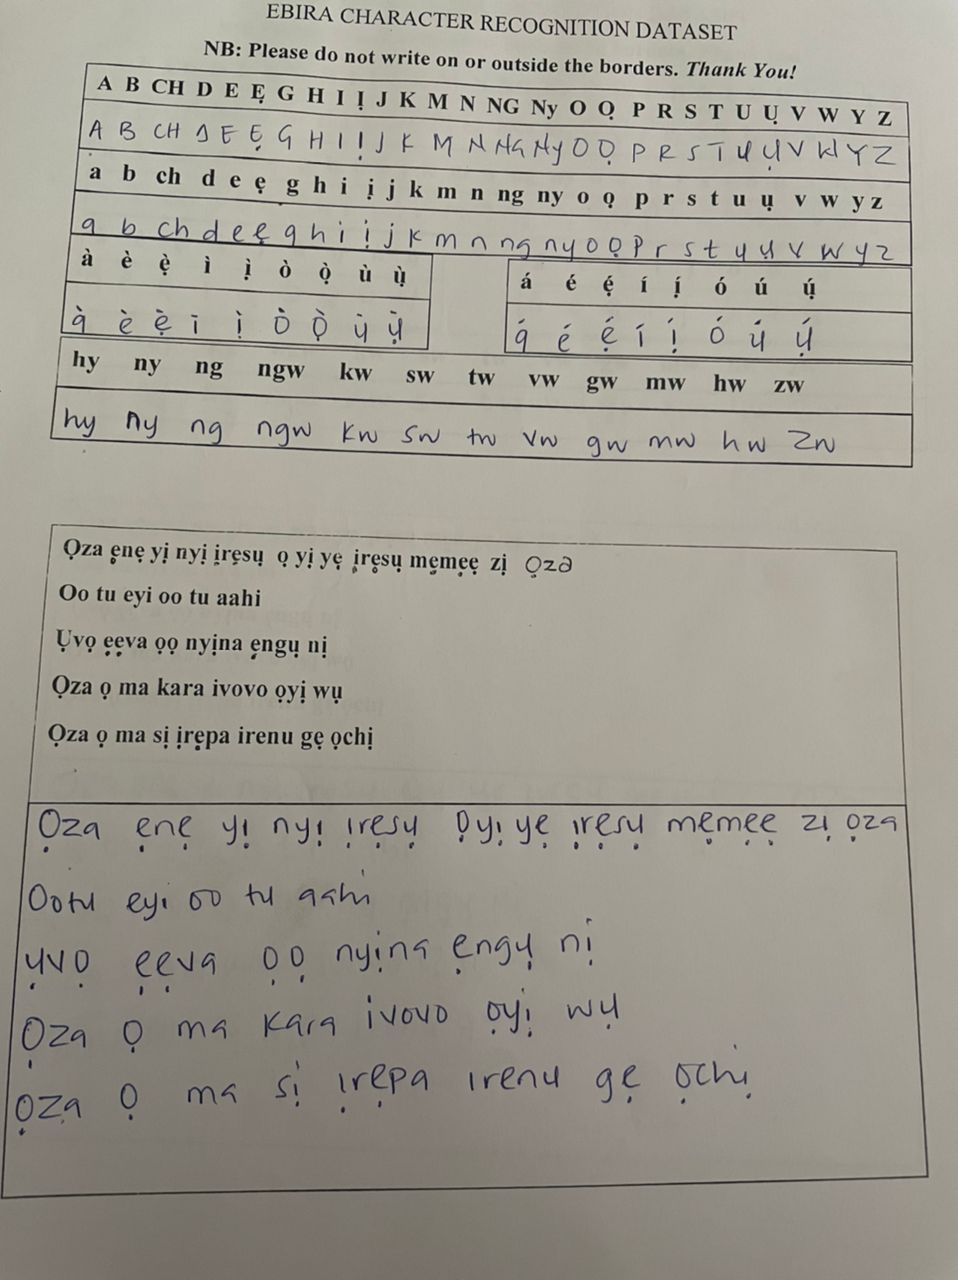 EBIRA CHARACTER RECOGNITION DATASET
NB: Please do not write on or outside the borders. Thank You!
A B CH D E Ẹ G H I Ị J K M N NG Ny O Ọ P R S T U Ụ V W Y Z
A B CH D E Ẹ G H I Ị J K M N NG Ny O Ọ P R S T U Ụ V W Y Z
a b ch d e ẹ g h i ị j k m n ng ny o ọ p r s t u ụ v w y z
a b ch d e ẹ g h i ị j k m n ng ny o ọ p r s t u ụ v w y z
à è ẹ̀ ì ị̀ ò ọ̀ ù ụ̀
á é ẹ́ í ị́ ó ú ụ́
à è ẹ̀ ì ị̀ ò ọ̀ ù ụ̀
á é ẹ́ í ị́ ó ú ụ́
hy ny ng ngw kw sw tw vw gw mw hw zw
hy ny ng ngw kw sw tw vw gw mw hw zw
Ọza ẹnẹ yị nyị ịrẹsụ ọ yị yẹ ịrẹsụ mẹmẹẹ zị ọza
Oo tu eyi oo tu aahi
Ụvọ ẹẹva ọọ nyịna ẹngụ nị
Ọza ọ ma kara ivovo ọyị wụ
Ọza ọ ma sị ịrẹpa irenu gẹ ọchị
Ọza ẹnẹ yị nyị ịrẹsụ ọyị yẹ ịrẹsụ mẹmẹẹ zị ọza
Ootu eyi oo tu aahi
ụvọ ẹẹva ọọ nyịna ẹngụ nị
Ọza ọ ma kara ivovo ọyị wụ
Ọza ọ ma sị ịrẹpa irenu gẹ ọchị